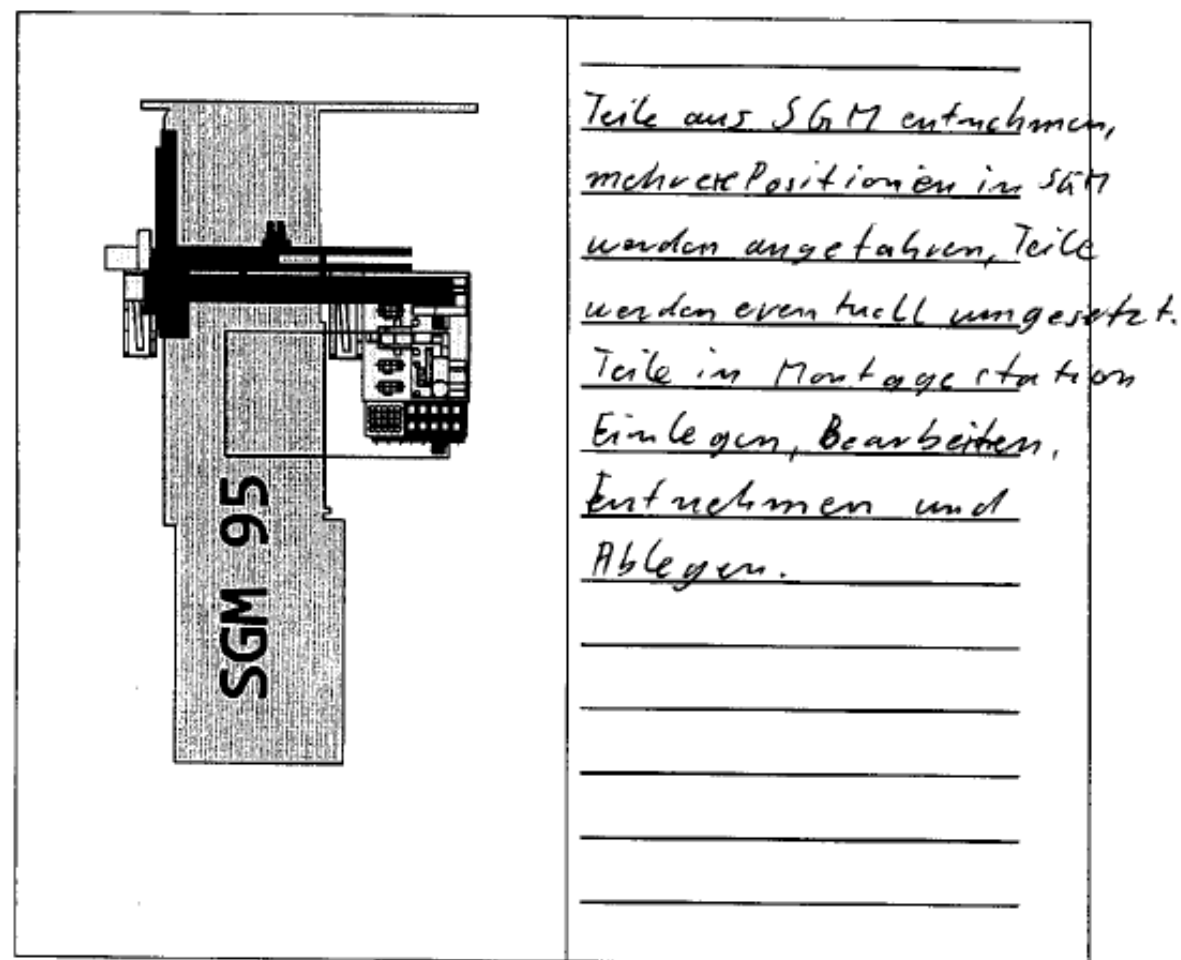 SGM 95
Teile aus SGM entnehmen,
mehrere Positionen in SGM
werden angefahren, Teile
werden eventuell umgesetzt.
Teile in Montagestation
Einlegen, Bearbeiten,
Entnehmen und
Ablegen.